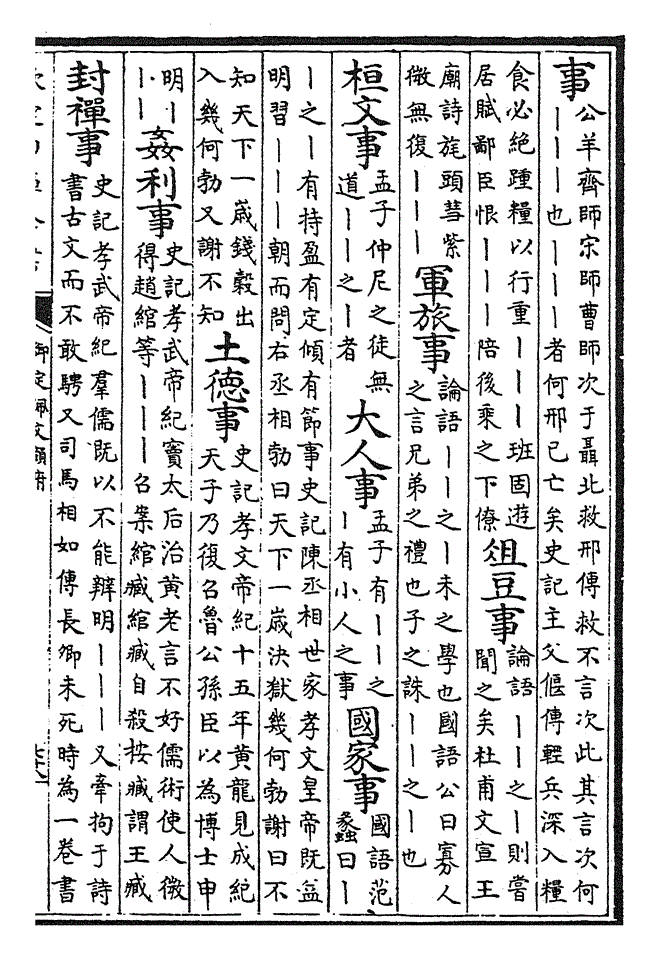 事
公羊齊師宋師曹師次于聶北救邢傳救不言次此其言次何
丨丨丨也丨丨丨者何邢已亡矣史記主父偃傳輕兵深入糧
食必絕踵糧以行重丨丨丨班固遊
居賦鄙臣恨丨丨丨陪後乘之下僚
俎豆事
論語丨丨之丨則嘗
聞之矣杜甫文宣王
廟詩旄頭彗紫
微無復丨丨丨
軍旅事
論語丨丨之丨未之學也國語公曰寡人
之言兄弟之禮也子之誅丨丨之丨也
桓文事
孟子仲尼之徒無
道丨丨之丨者
大人事
孟子有丨丨之
丨有小人之事
國家事
國語范
蠡曰丨
丨之丨有持盈有定傾有節事史記陳丞相世家孝文皇帝既益
明習丨丨丨朝而問右丞相勃曰天下一嵗決獄幾何勃謝曰不
知天下一嵗錢穀出
入幾何勃又謝不知
土德事
史記孝文帝紀十五年黃龍見成紀
天子乃復召魯公孫臣以為博士申
明丨
丨丨
姦利事
史記孝武帝紀竇太后治黃老言不好儒術使人微
得趙綰等丨丨丨召案綰臧綰臧自殺按臧謂王臧
封禪事
史記孝武帝紀羣儒既以不能辨明丨丨丨又牽拘于詩
書古文而不敢騁又司馬相如傳長卿未死時為一卷書
御定佩文韻府